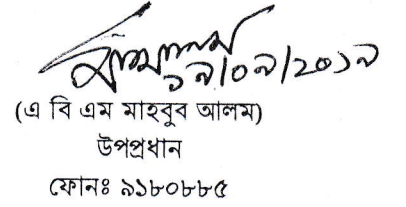 ১৯/০৯/২০১৯
(এ বি এম মাহবুব আলম)
উপপ্রধান
ফোনঃ ৯১৮০৮৮৫